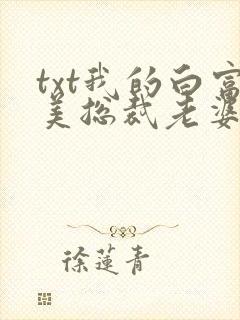 txt我的白富
美总裁老婆
徐莲青